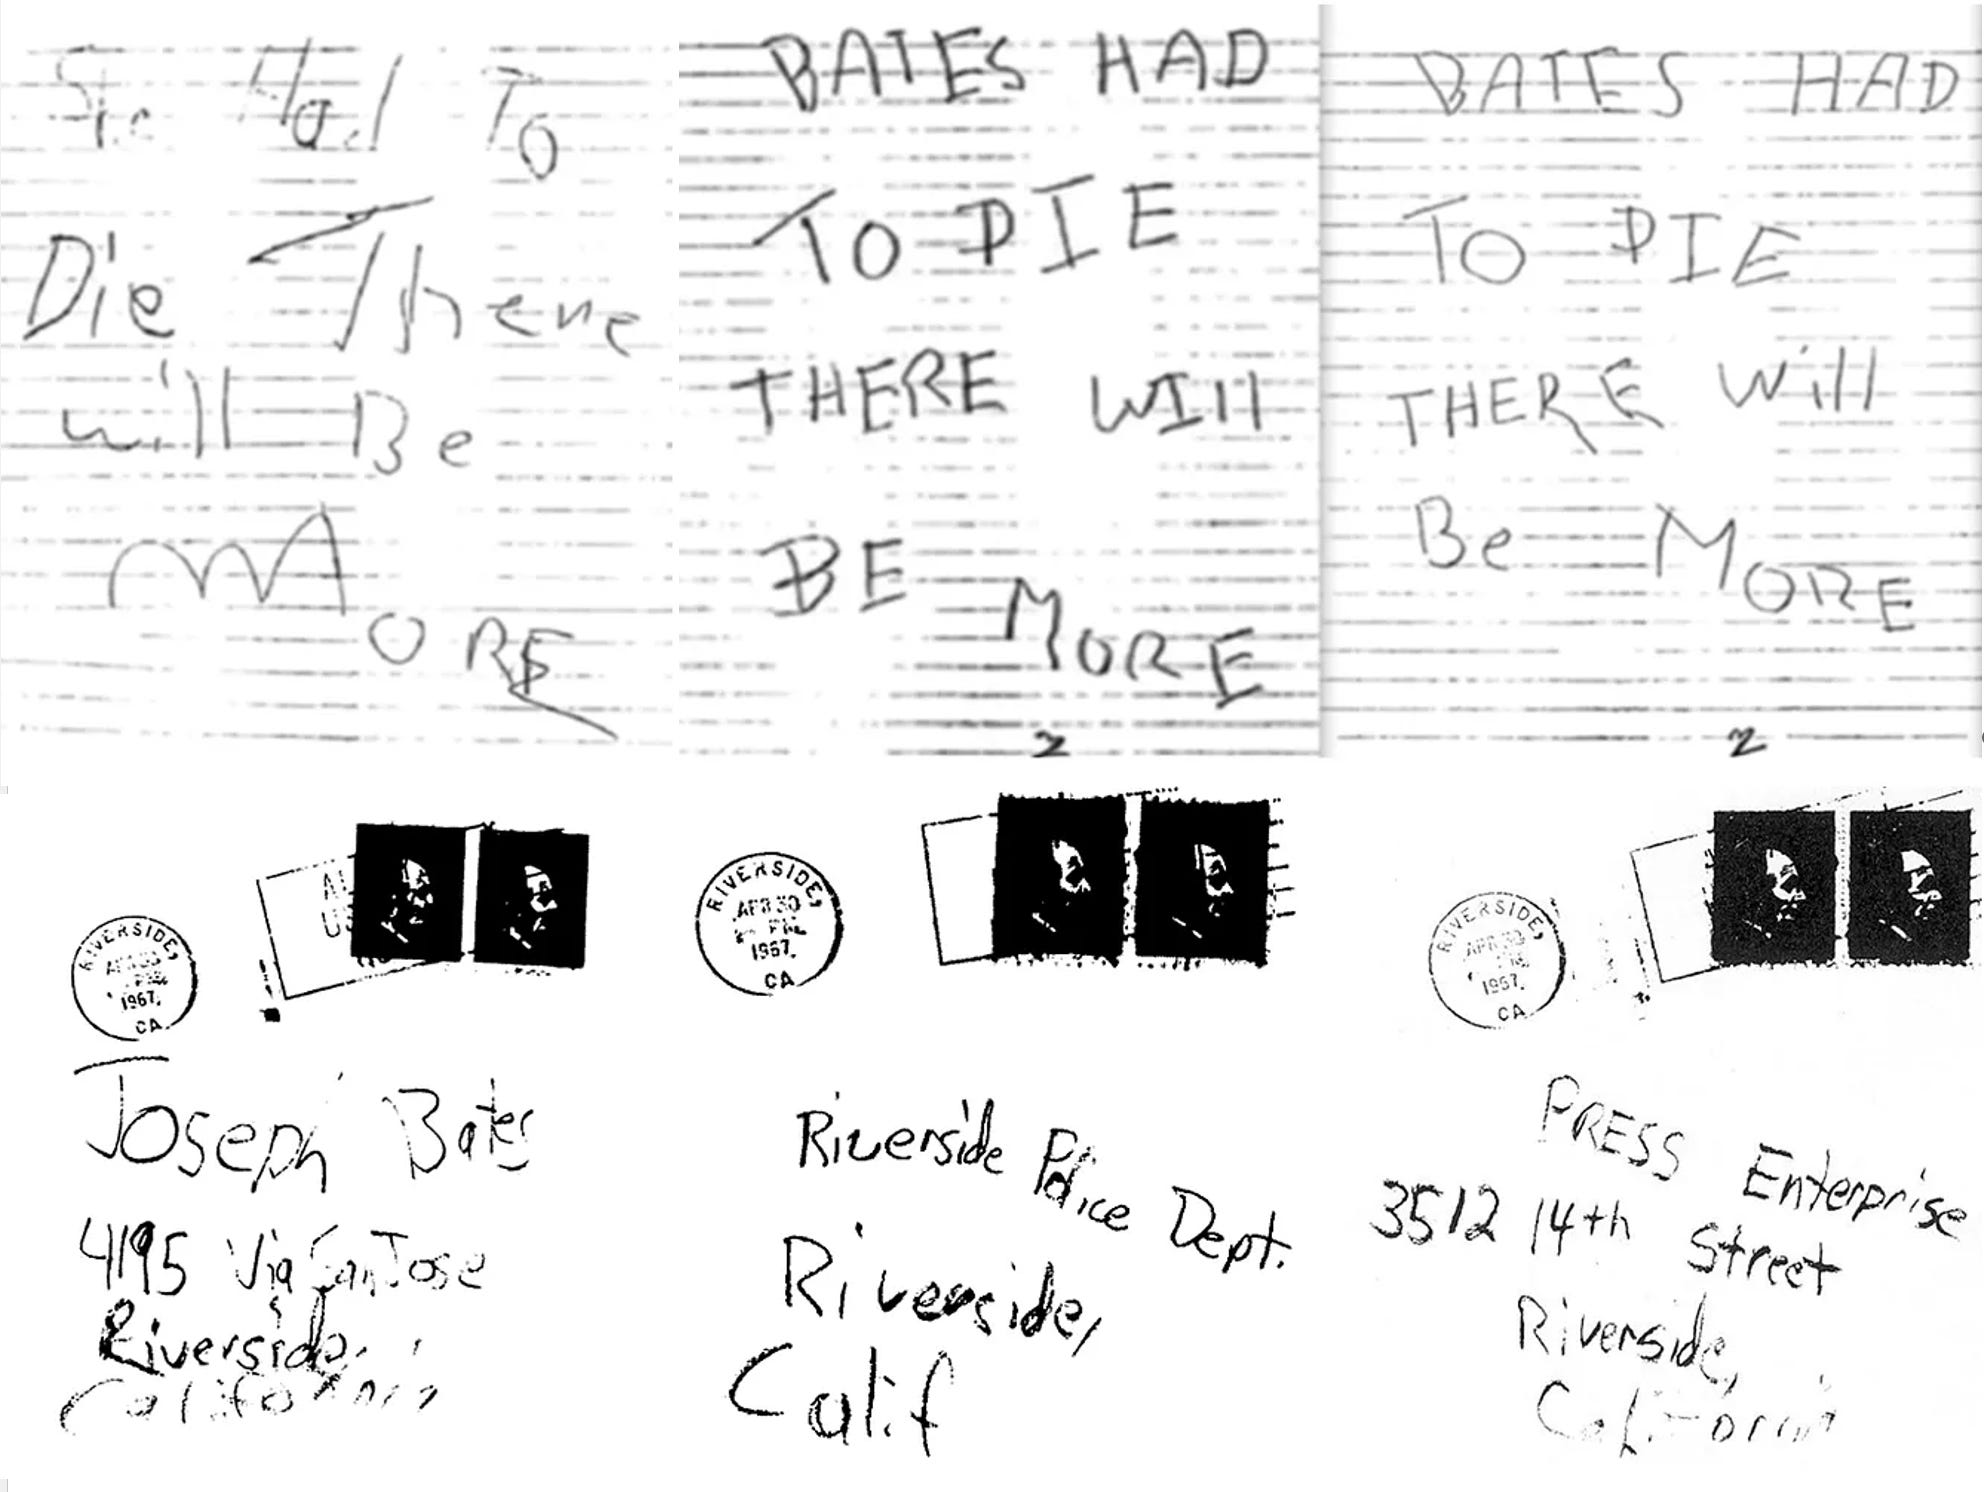 She Had To
Die There
will Be
MORE
BATES HAD
TO DIE
THERE WIll
BE MORE
2
BATES HAD
TO DIE
THERE Will
Be MORE
2
RIVERSIDE,
APR 30
1967.
CA
Joseph Bates
4195 Via San Jose
Riverside,
California
RIVERSIDE,
APR 30
PM
1967.
CA
Riverside Police Dept.
Riverside,
Calif
RIVERSIDE,
APR 30
PM
1967.
CA
PRESS Enterprise
3512 14th Street
Riverside,
California